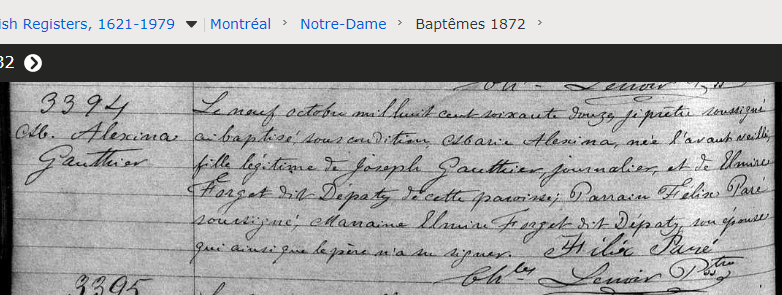 ish Registers, 1621-1979 Montréal > Notre-Dame > Baptêmes 1872 >
32
Chs. Lenoir Ptre
3394
M. Alexina
Gauthier
Le neuf octobre mil huit cent soixante douze, je prêtre soussigné
ai baptisé sous condition Marie Alexina, née l'avant veille,
fille légitime de Joseph Gauthier, journalier, et de Elmire
Forget dit Dépaty de cette paroisse; Parrain Félix Paré
soussigné, Marraine Elmire Forget dit Dépaty, son épouse
qui ainsi que le père n'a su signer. Félix Paré
Chles Lenoir Ptre
3395